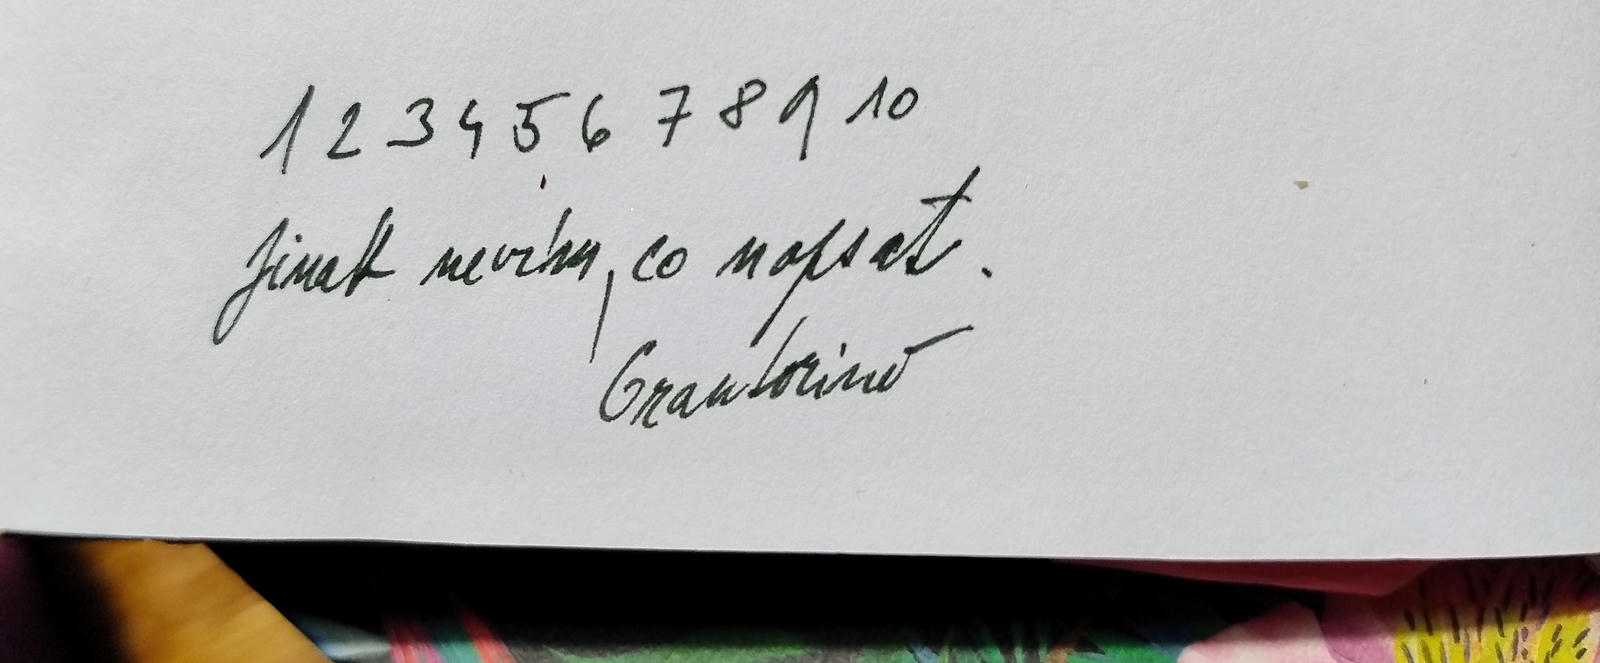 1 2 3 4 5 6 7 8 9 10
Jinak nevím, co napsat.
Grantorino